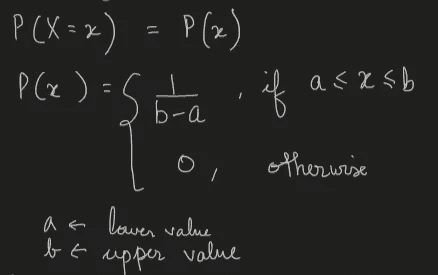 P(X=x) = P(x)
P(x) = { 1/(b-a) , if a ≤ x ≤ b
0, otherwise
a ← lower value
b ← upper value